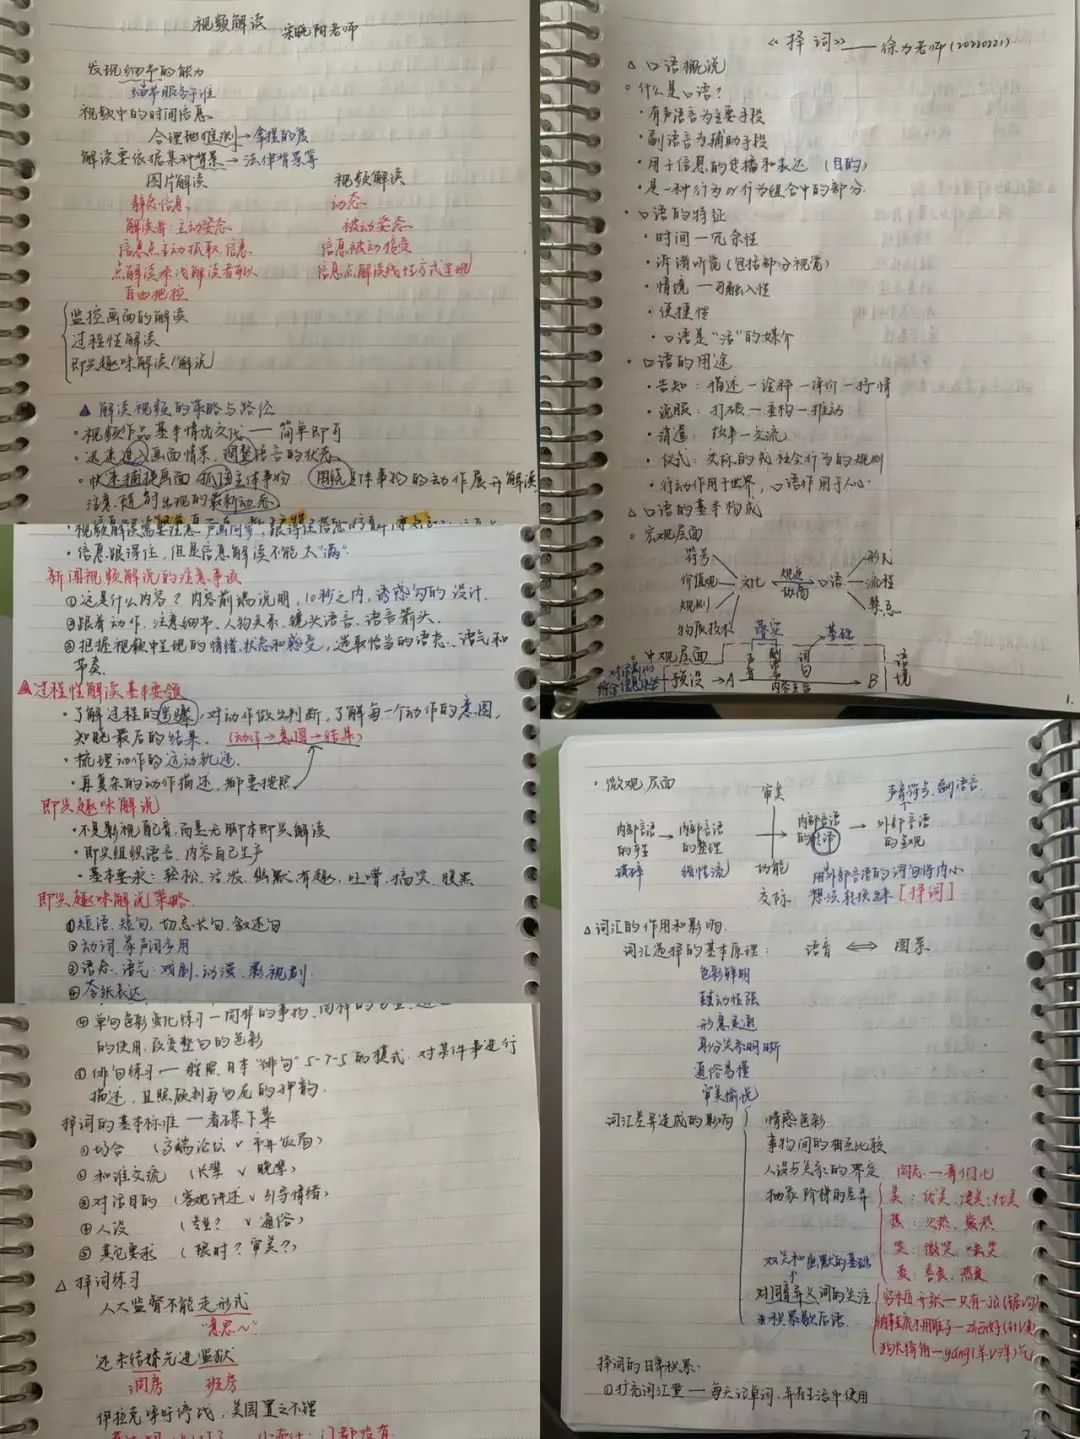 视频解读 宋晓阳老师
发现细节的能力
细节服务于谁
视频中的时间信息
合理地推测→拿捏的度
解读要依据某种背景→法律背景等
图片解读 视频解读
静态信息 动态
解读者:主动姿态 被动姿态
信息点主动抓取.信息 信息被动接受
点解读 解读者可以 信息点解读线性方式呈现
自由把控
监控画面的解读
过程性解读
即兴趣味解读/解说
▲ 解读视频的策略与路径
·视频作品基本情况交代—简单即可
·迅速进入画面情景,调整语言的状态
·快速捕捉画面 抓住主体事物 围绕具体事物的动作展开解读
注意随时出现的最新动态
·视频解读需要注意"声画同步"
·信息跟得住,但是信息解读不能太"满"
新闻视频解说的注意事项
①这是什么内容?内容前端说明,10秒之内,诱惑句的设计.
②跟着动作,注意细节、人物关系、镜头语言、语言箭头.
③把握视频中呈现的情绪、状态和感受,选取恰当的语态、语气和
节奏.
▲过程性解读基本要领
·了解过程的步骤,对动作做出判断,了解每一个动作的意图,
知晓最后的结果. (动作→意图→结果)
·梳理动作的运动轨迹.
·再复杂的动作描述,都要按照
即兴趣味解说
·不是影视配音,而是无脚本即兴解读
·即兴组织语言,内容自己生产
·基本要求:轻松、活泼、幽默、有趣、吐嘈、搞笑、腹黑
即兴趣味解说策略
①短语、短句,切忌长句、叙述句
②动词、拟声词多用
③语态、语气:戏剧、动漫、影视剧.
④夸张表达
④单句色彩变化练习—同样的事物、同样的
的使用,改变整句的色彩
⑤俳句练习—按照日本"俳句"5-7-5的模式.对某件事进行
描述,且照顾到每句尾的押韵.
择词的基本标准—看碟下菜
①场合 (高端论坛 v 平民饭局)
②和谁交流 (长辈 v 晚辈)
③对话目的 (客观讲述 v 引导情绪)
④人设 (专业? v 通俗)
⑤其它要求 (限时?审美?)
△ 择词练习
人大监督不能走形式
"意思~"
还未结婚先进监狱
洞房 班房
伊拉克呼吁停战,美国置之不理
《择词》——徐力老师(20220221)
△ 口语概说
○ 什么是口语?
·有声语言为主要手段
·副语言为辅助手段
·用于信息的传播和表达 (目的)
·是一种行为or行为组合中的部分
·口语的特征
·时间—冗余性
·诉诸听觉(包括部分视觉)
·情境—可融入性
·便捷性
·口语是"活"的媒介
·口语的用途
·告知:描述—诠释—评价—抒情
·说服:打破—重构—推动
·消遣:故事—交流
·仪式:交际的或社会行为的规则
·行动作用于世界,口语作用于人心
△ 口语的基本构成
○ 宏观层面
符号 形式
价值观 文化 观点 口语 流程
规则 协商 禁忌
物质技术
○ 中观层面 落实 基础
预设→A 声音 副语言 词句 →B 语境
内容主旨
1.
·微观层面
审美 声音符号、副语言
内部言语的产生→内部言语的整理 内部言语的转译→外部言语的呈现
破碎 线性流 功能 用外部言语的词句将内心
交际 想法转换出来[择词]
△词汇的作用和影响
词汇选择的基本原理: 语音 ⇔ 图景
色彩鲜明
鼓动性强
形意灵通
身份关系明晰
通俗易懂
审美愉悦
词汇差异造成的影响 情感色彩
事物间的相互比较
人设与关系的界定 同志—哥们儿
抽象阶梯的差异 美:优美、凄美、壮美
热:火热、燥热
笑:微笑、嘲笑
爱:喜爱、热爱
双关和幽默的基础
对同音异义词的关注
*积累歇后语
择词的日常积累:
①扩充词汇量—每天记单词,并在生活中使用
2.